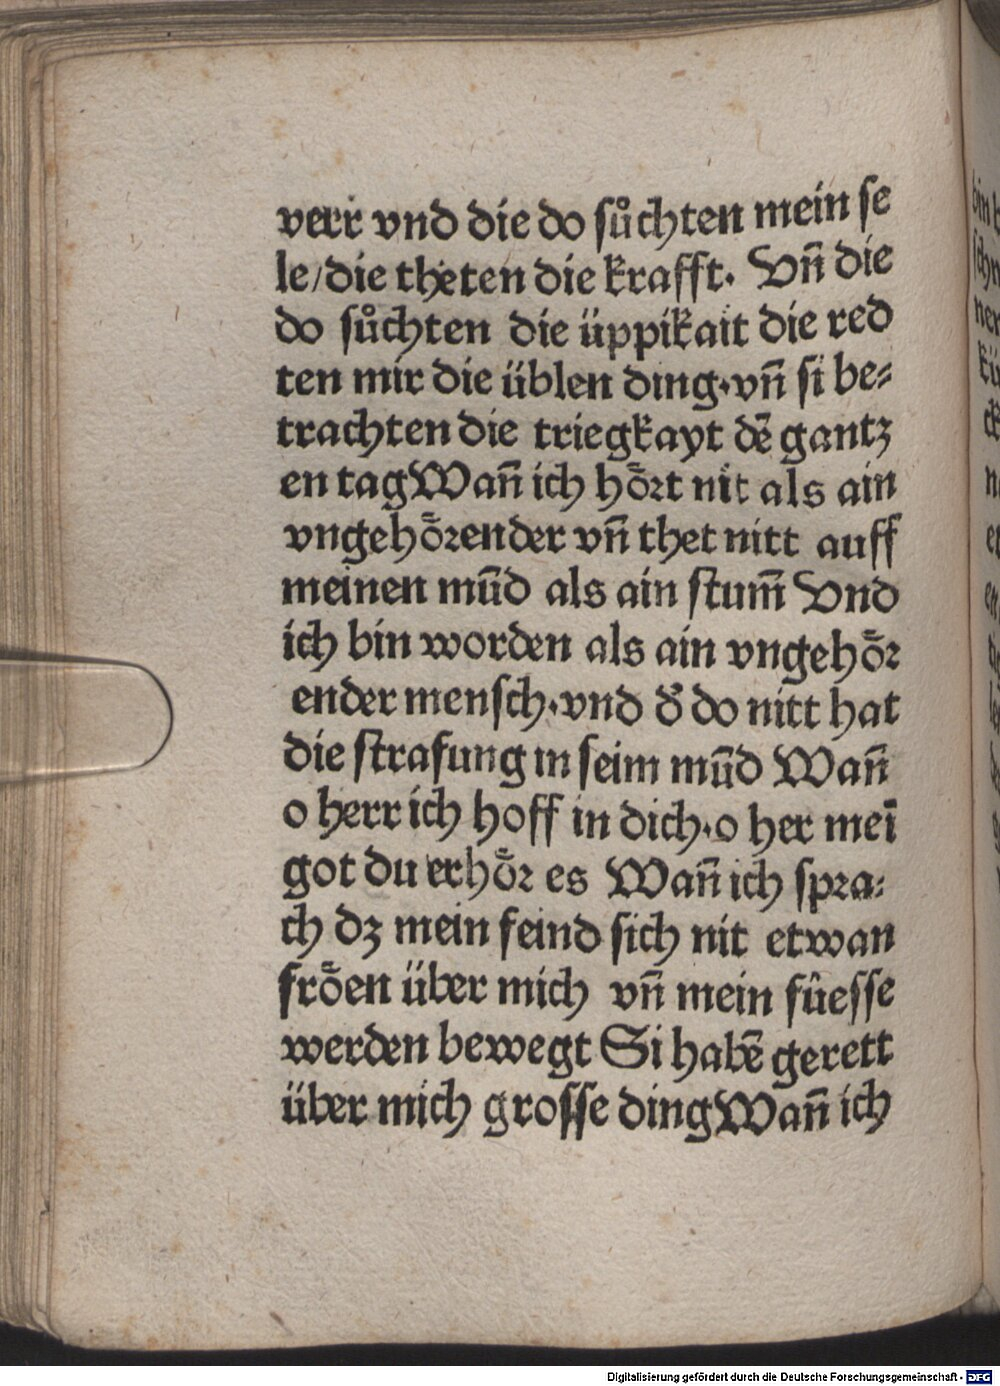 verr vnd die do sůchten mein se
le/die theten die krafft. Vn̄ die
do sůchten die üppikait die red
ten mir die üblen ding.vn̄ si be⸗
trachten die triegkayt dē gantz
en tag Wan̄ ich hö̈rt nit als ain
vngehörender vn̄ thet nitt auff
meinen mūd als ain stum̄ Vnd
ich bin worden als ain vngehör
ender mensch.vnd d̕ do nitt hat
die strafung in seim mūd Wan̄
o herr ich hoff in dich.o her meī
got du erhör es Wan̄ ich spra⸗
ch dz mein feind sich nit etwan
fröen über mich vn̄ mein fûesse
werden bewegt Si habē gerett
über mich grosse ding Wan̄ ich
Digitalisierung gefördert durch die Deutsche Forschungsgemeinschaft - DFG